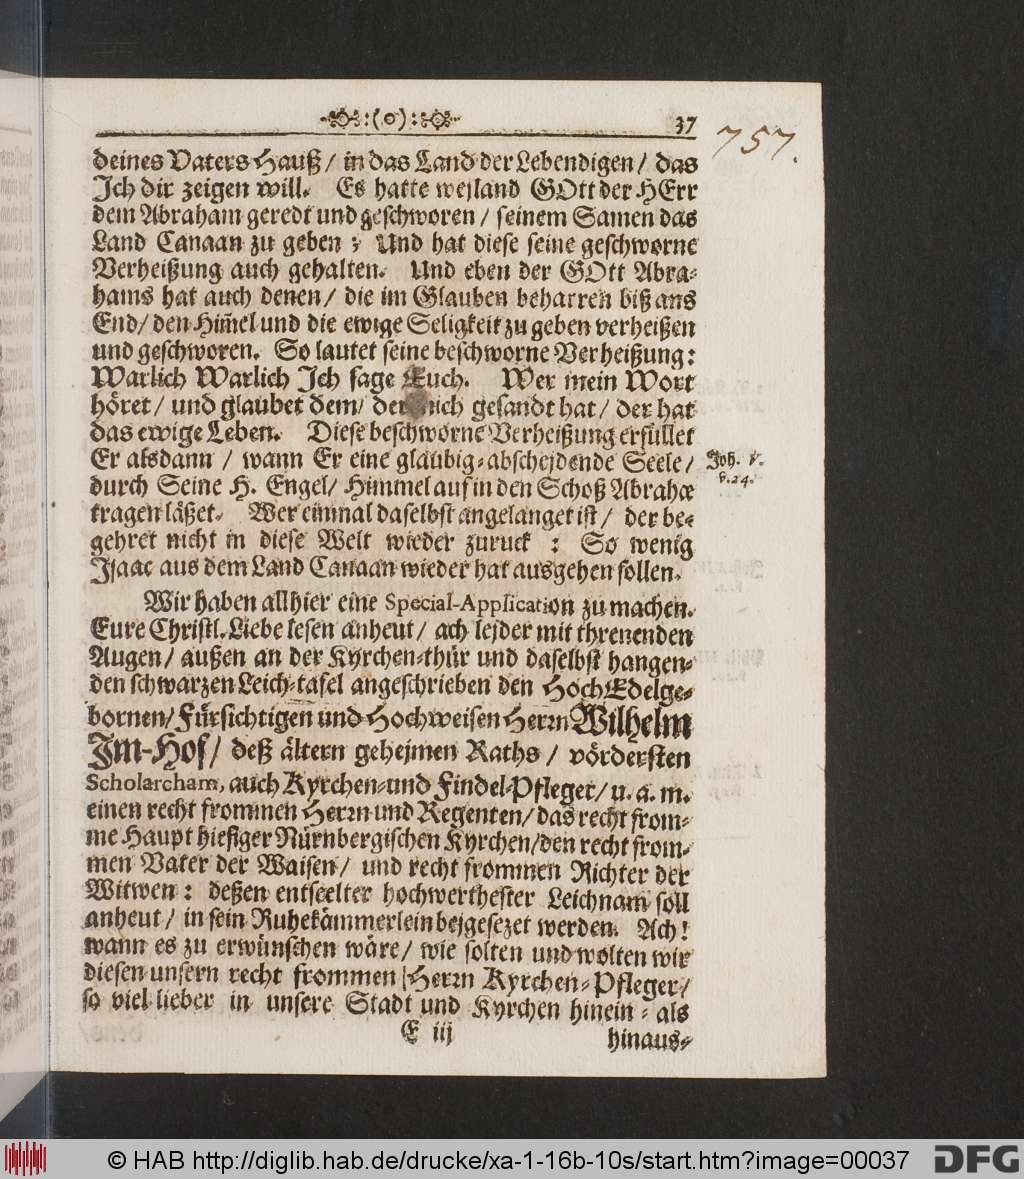 :(o): 37
757.
deines Vaters Hauß / in das Land der Lebendigen / das
Ich dir zeigen will. Es hatte weyland GOtt der HErr
dem Abraham geredt und geschworen / seinem Samen das
Land Canaan zu geben ; Und hat diese seine geschworne
Verheißung auch gehalten. Und eben der GOtt Abra-
hams hat auch denen / die im Glauben beharren biß ans
End / den Him̃el und die ewige Seligkeit zu geben verheißen
und geschworen. So lautet seine beschworne Verheißung:
Warlich Warlich Ich sage Euch. Wer mein Wort
höret / und glaubet dem / der mich gesandt hat / der hat
das ewige Leben. Diese beschworne Verheißung erfüllet
Er alsdann / wann Er eine gläubig-abscheydende Seele /
Joh. V.
v. 24.
durch Seine H. Engel / Himmel auf in den Schoß Abrahæ
tragen läßet. Wer einmal daselbst angelanget ist / der be-
gehret nicht in diese Welt wieder zuruck : So wenig
Isaac aus dem Land Canaan wieder hat ausgehen sollen.
Wir haben allhier eine Special-Application zu machen.
Eure Christl. Liebe lesen anheut / ach leyder mit threnenden
Augen / außen an der Kyrchen-thür und daselbst hangen-
den schwarzen Leich-tafel angeschrieben den HochEdelge-
bornen / Fürsichtigen und Hochweisen Herrn Wilhelm
Im-Hof / deß ältern geheymen Raths / vördersten
Scholarcham, auch Kyrchen-und Findel-Pfleger / u. a. m.
einen recht frommen Herrn und Regenten / das recht from-
me Haupt hiesiger Nürnbergischen Kyrchen / den recht from-
men Vater der Waisen / und recht frommen Richter der
Witwen : deßen entseelter hochwerthester Leichnam soll
anheut / in sein Ruhekämmerlein beygesezet werden. Ach!
wann es zu erwünschen wäre / wie solten und wolten wir
diesen unsern recht frommen Herrn Kyrchen-Pfleger /
so viel lieber in unsere Stadt und Kyrchen hinein - als
E iij hinaus-
© HAB http://diglib.hab.de/drucke/xa-1-16b-10s/start.htm?image=00037
DFG